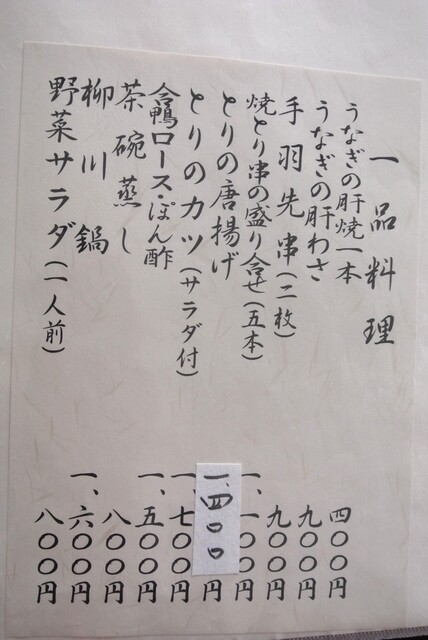 一品料理
うなぎの肝焼一本 四〇〇円
うなぎの肝わさ 九〇〇円
手羽先串(二枚) 九〇〇円
焼とり串の盛り合せ(五本) 一、一〇〇円
とりの唐揚げ 一、四〇〇円
とりのカツ(サラダ付) 一、七〇〇円
合鴨ロース・ぽん酢 一、五〇〇円
茶碗蒸し 八〇〇円
柳川鍋 一、六〇〇円
野菜サラダ(一人前) 八〇〇円